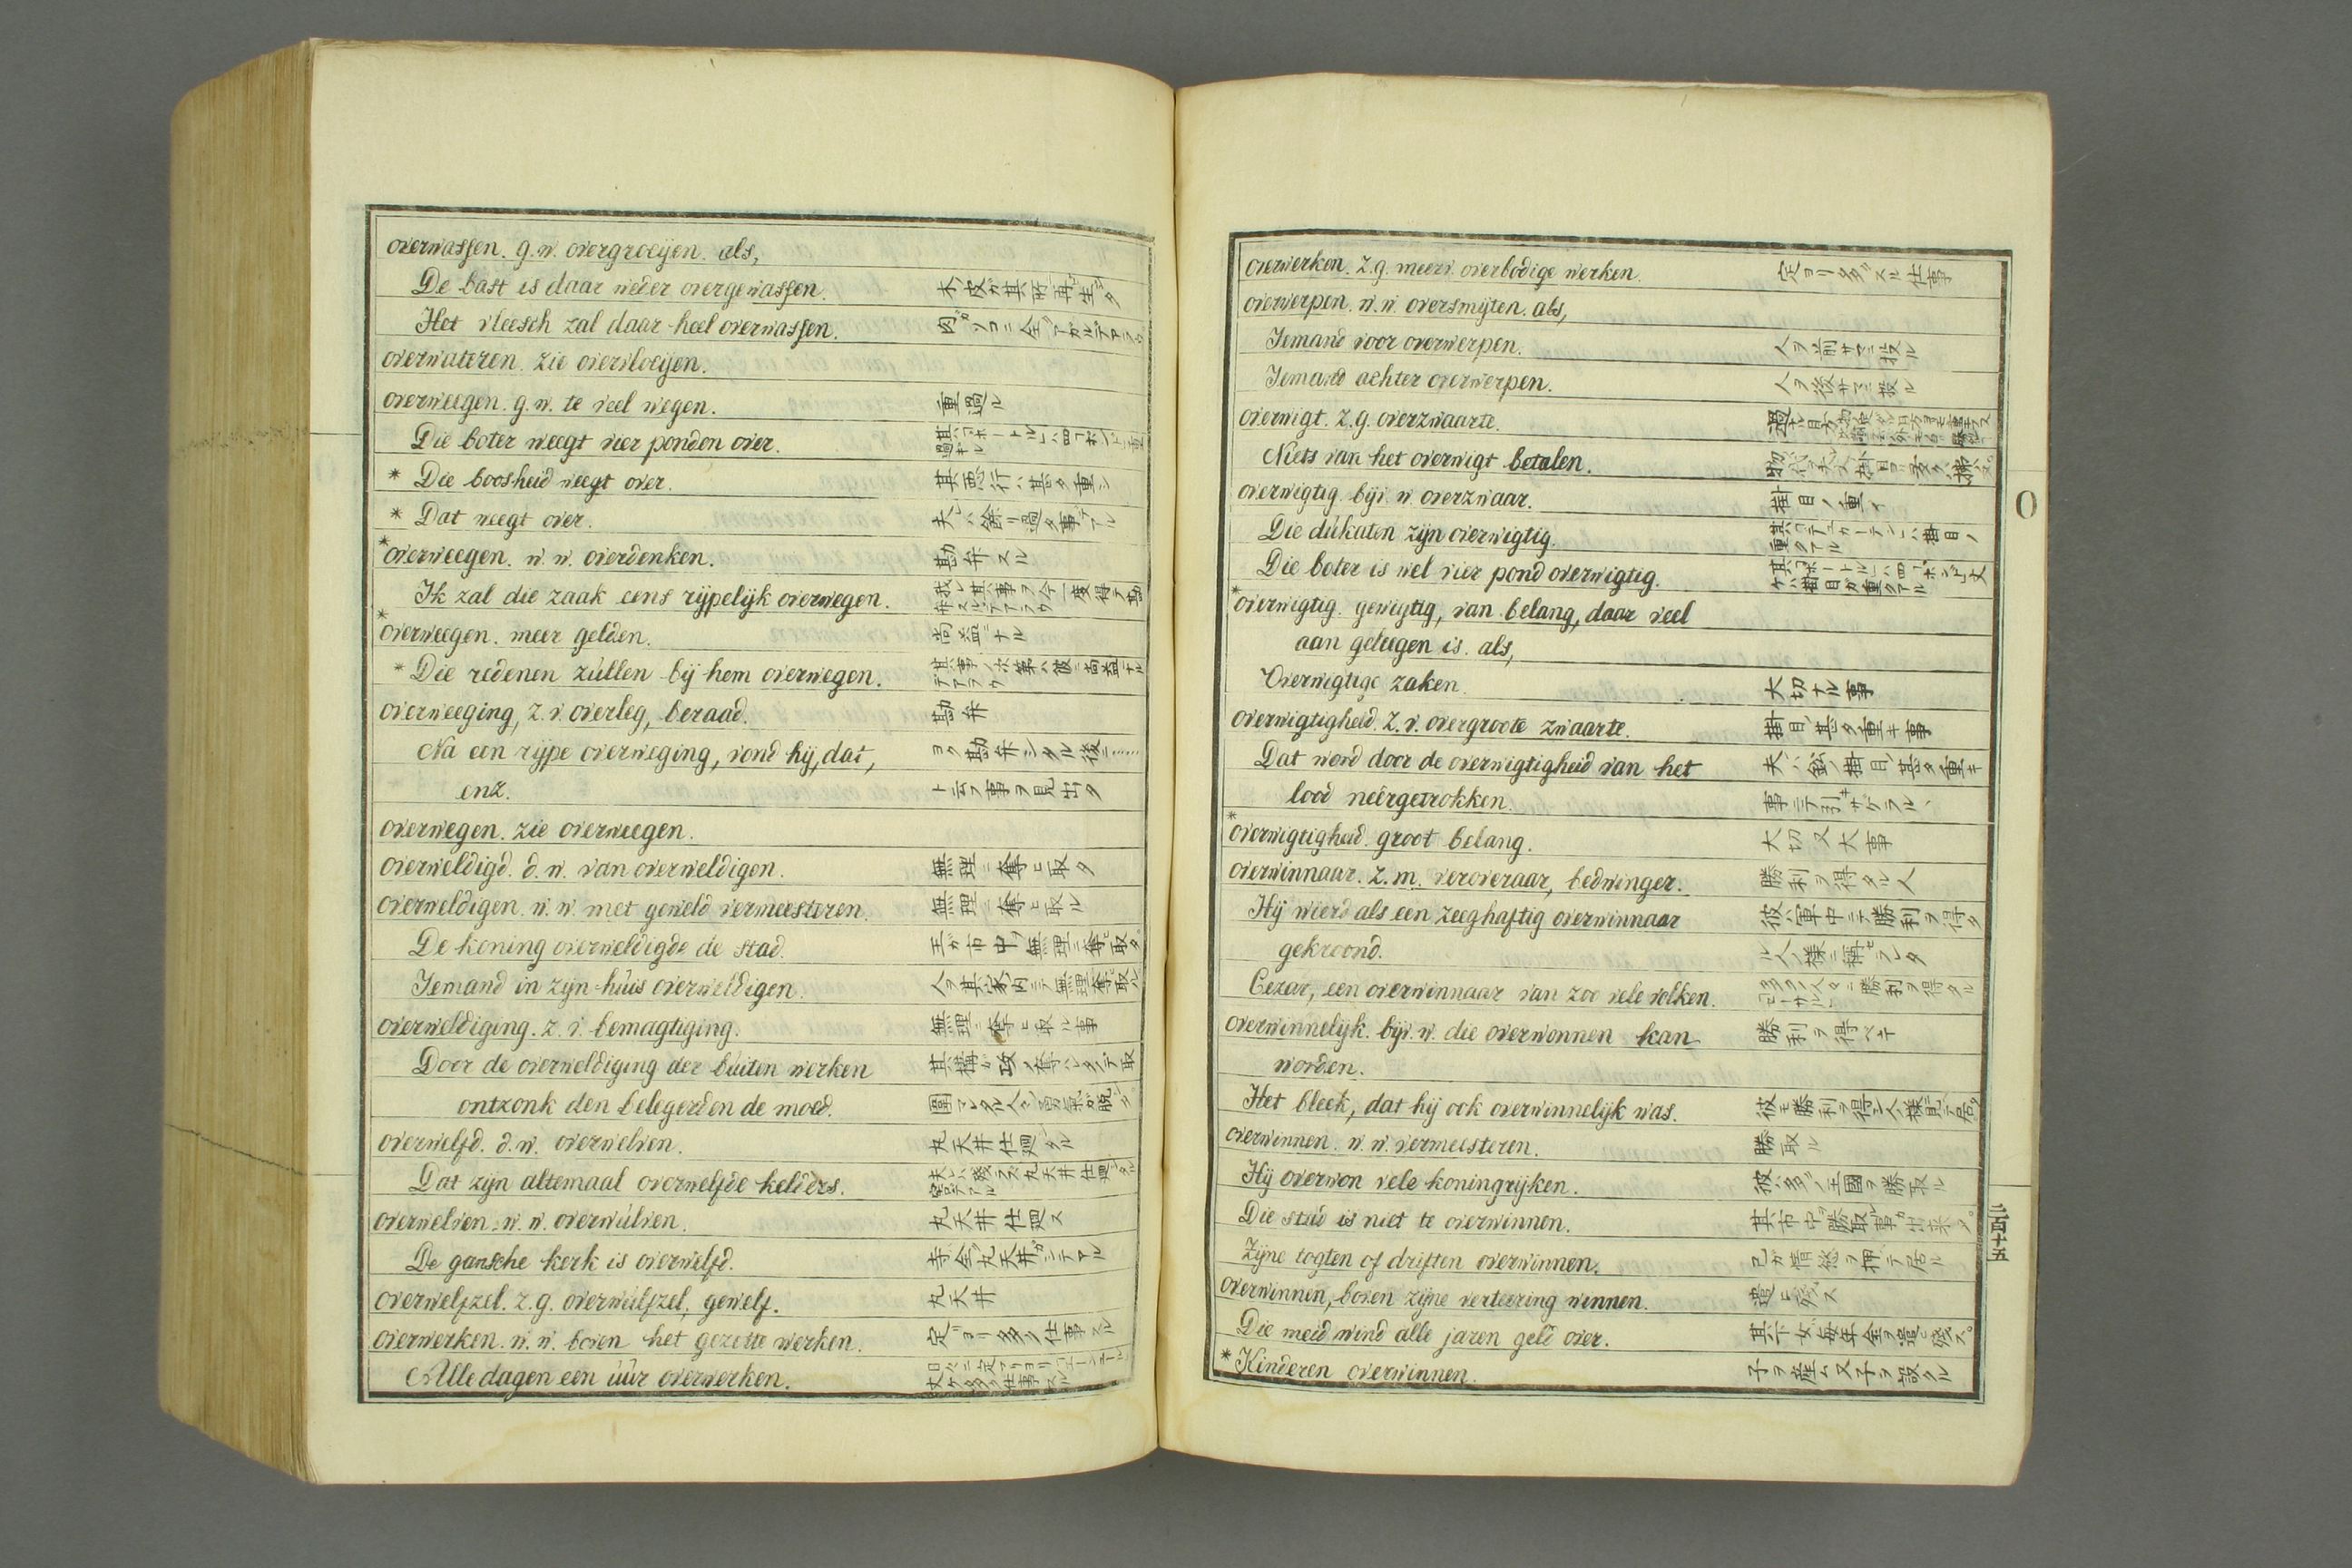 overwassen. g.w. overgroeijen. als,
De bast is daar weder overgewassen. 木ノ皮ガ其所ニ再ビ生ジタ
Het vleesch zal daar heel overwassen. 肉ガソコニ全ク
overwateren. zie overvloeijen.
overweegen. g.w. te veel wegen. 重過ル
Die boter weegt vier ponden over. 其「ボートル」ハ四「ポンド」重過ギル
* Die boosheid weegt over. 其悪行ハ甚タ重シ
* Dat weegt over. 夫レハ餘リ過タ事デアル
* overweegen. w.w. overdenken. 勘弁スル
Ik zal die zaak eens rijpelijk overwegen. 我レ其事ヲ今一度得ク勘弁スルデアラウ
* overweegen. meer gelden. 尚益ニナル
* Die redenen zúllen bij hem overwegen. 其事ノ次第ハ彼ニ尚益ニナルデアラウ
overweeging, z.v. overleg, beraad. 勘弁
Na een rijpe overweging, vond hij, dat, ヨク勘弁シタル後ニ……
enz. ト云フ事ヲ見出タ
overwegen. zie overweegen.
overweldigd. d.w. van overweldigen. 無理ニ奪ヒ取タ
overweldigen. w.w. met geweld vermeesteren. 無理ニ奪ヒ取ル
De koning overweldigde de stad. 王ガ市中ヲ無理ニ奪ヒ取タ
Iemand in zijn húis overweldigen. 人ヲ其家内ニテ無理ニ奪ヒ取ル
overweldiging. z.v. bemagtiging. 無理ニ奪ヒ取ル事
Door de overweldiging der búiten werken
ontzonk den belegerden de moed.
overwelfd. d.w. overwelven. 丸天井仕廻シタル
Dat zijn altemaal overwelfde kelders.
overwelven. w.w. overwúlven. 丸天井仕廻ス
De gansche kerk is overwelfd. 寺ノ全ク丸天井ガシテアル
overwelfzel. z.g. overwúlfzel, gewelf. 丸天井
overwerken. w.w. boven het gezette werken. 定ヨリ多ク仕事スル
Alle dagen een úúr overwerken.
overwerken. z.g. meerv. overbodige werken. 定ヨリ多クスル仕事
overwerpen. w.w. oversmijten. als,
Iemand voor overwerpen. 人ヲ前サマニ投ル
Iemand achter overwerpen. 人ヲ後サマニ投ル
overwigt. z.g. overzwaarte.
Niets van het overwigt betalen.
overwigtig. bijv. w. overzwaar. 掛目ノ重イ
Die dúkaten zijn overwigtig. 其「デュカーテン」ハ掛目ノ重クアル
Die boter is wel vier pond overwigtig. 其「ボートル」ハ四「ポンド」丈ケハ掛目ガ重クアル
* overwigtig. gewigtig, van belang, daar veel
aan geleegen is. als,
Overwigtige zaken. 大切ナル事
overwigtigheid. z.v. overgroote zwaarte. 掛目ノ甚タ重キ事
Dat werd door de overwigtigheid van het 夫レハ鉛ノ掛目ノ甚タ重キ
lood neêrgetrokken. 事ニテ引サゲラルヽ
* overwigtigheid. groot belang. 大切又大事
overwinnaar. z.m. veroveraar, bedwinger. 勝利ヲ得タル人
Hij wierd als een zeeghaftig overwinnaar 彼ハ軍中ニテ勝利ヲ得タ
gekroond. ル人ノ様ニ稱セラレタ
Cezar, een overwinnaar van zoo vele volken.
overwinnelijk. bijv. w. die overwonnen kan 勝利ヲ得ベキ
worden.
Het bleek, dat hij ook overwinnelijk was.
overwinnen. w.w. vermeesteren. 勝取ル
Hij overwon vele koningrijken. 彼ハ多クノ王國ヲ勝取ル
Die stad is niet te overwinnen.
Zijne togten of driften overwinnen. 己ガ情慾ヲ押テ居ル
overwinnen, boven zijne verteering winnen. 遣ヒ殘ス
Die meid wind alle jaren geld over. 其下女ハ毎年金ヲ遣ヒ殘ス。
* Kinderen overwinnen. 子ヲ産ム又子ヲ設クル
O
二百十五